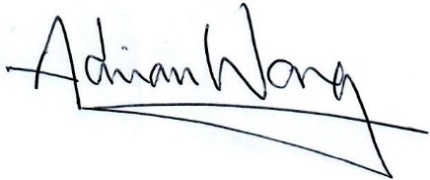 Adrian Wong